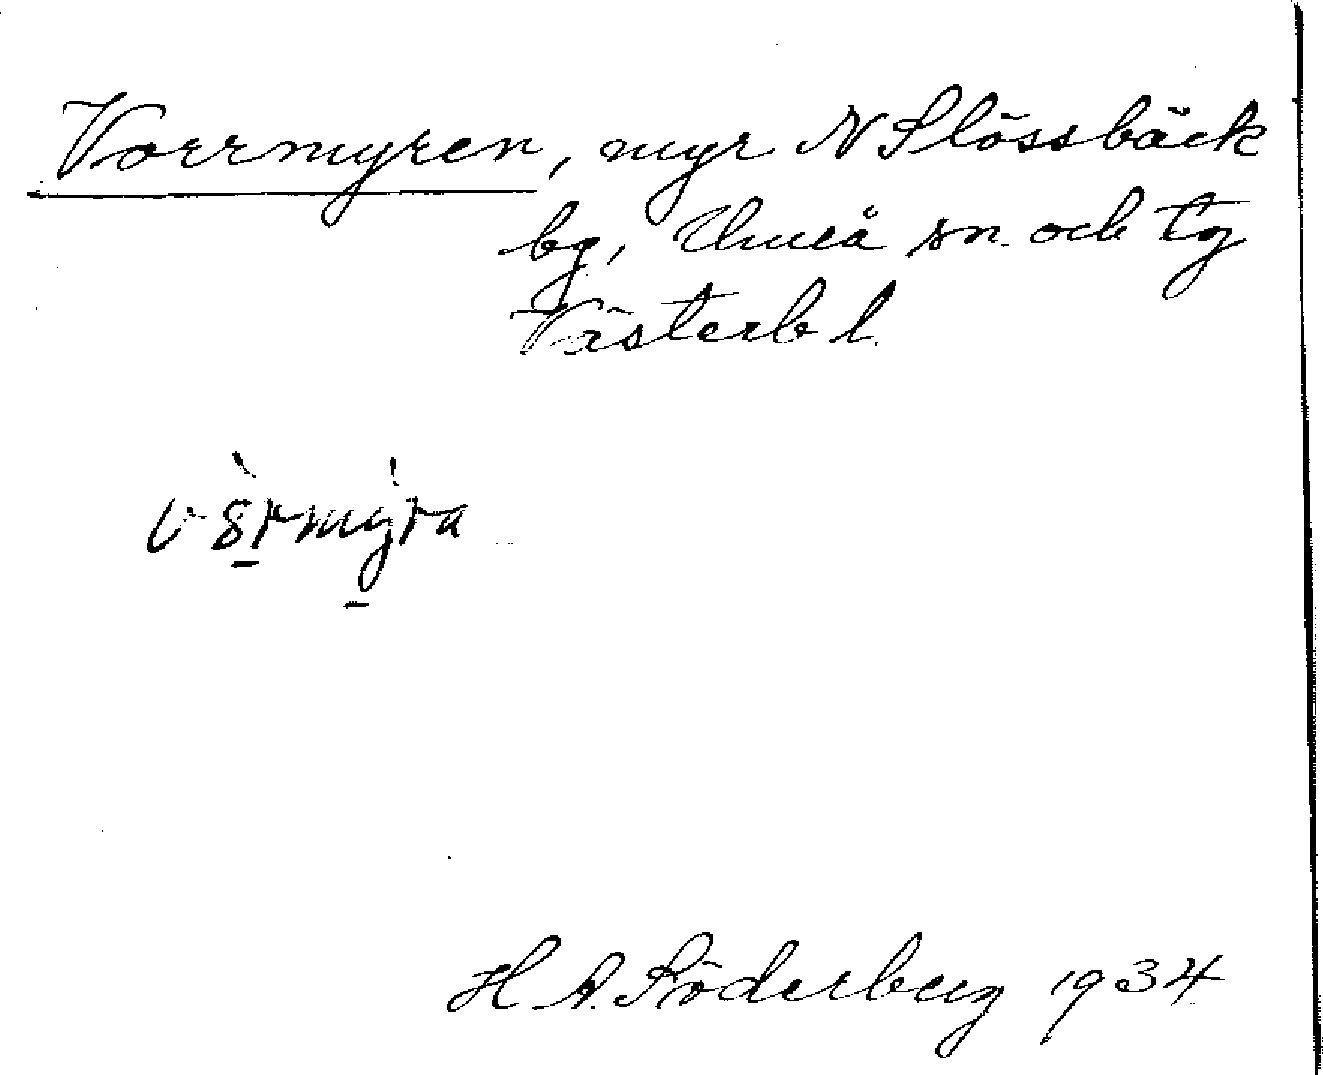 Vorrmyren, myr N Slössbäck
bg, Umeå sn. och tg
Västerb l.
H A. Söderberg 1934